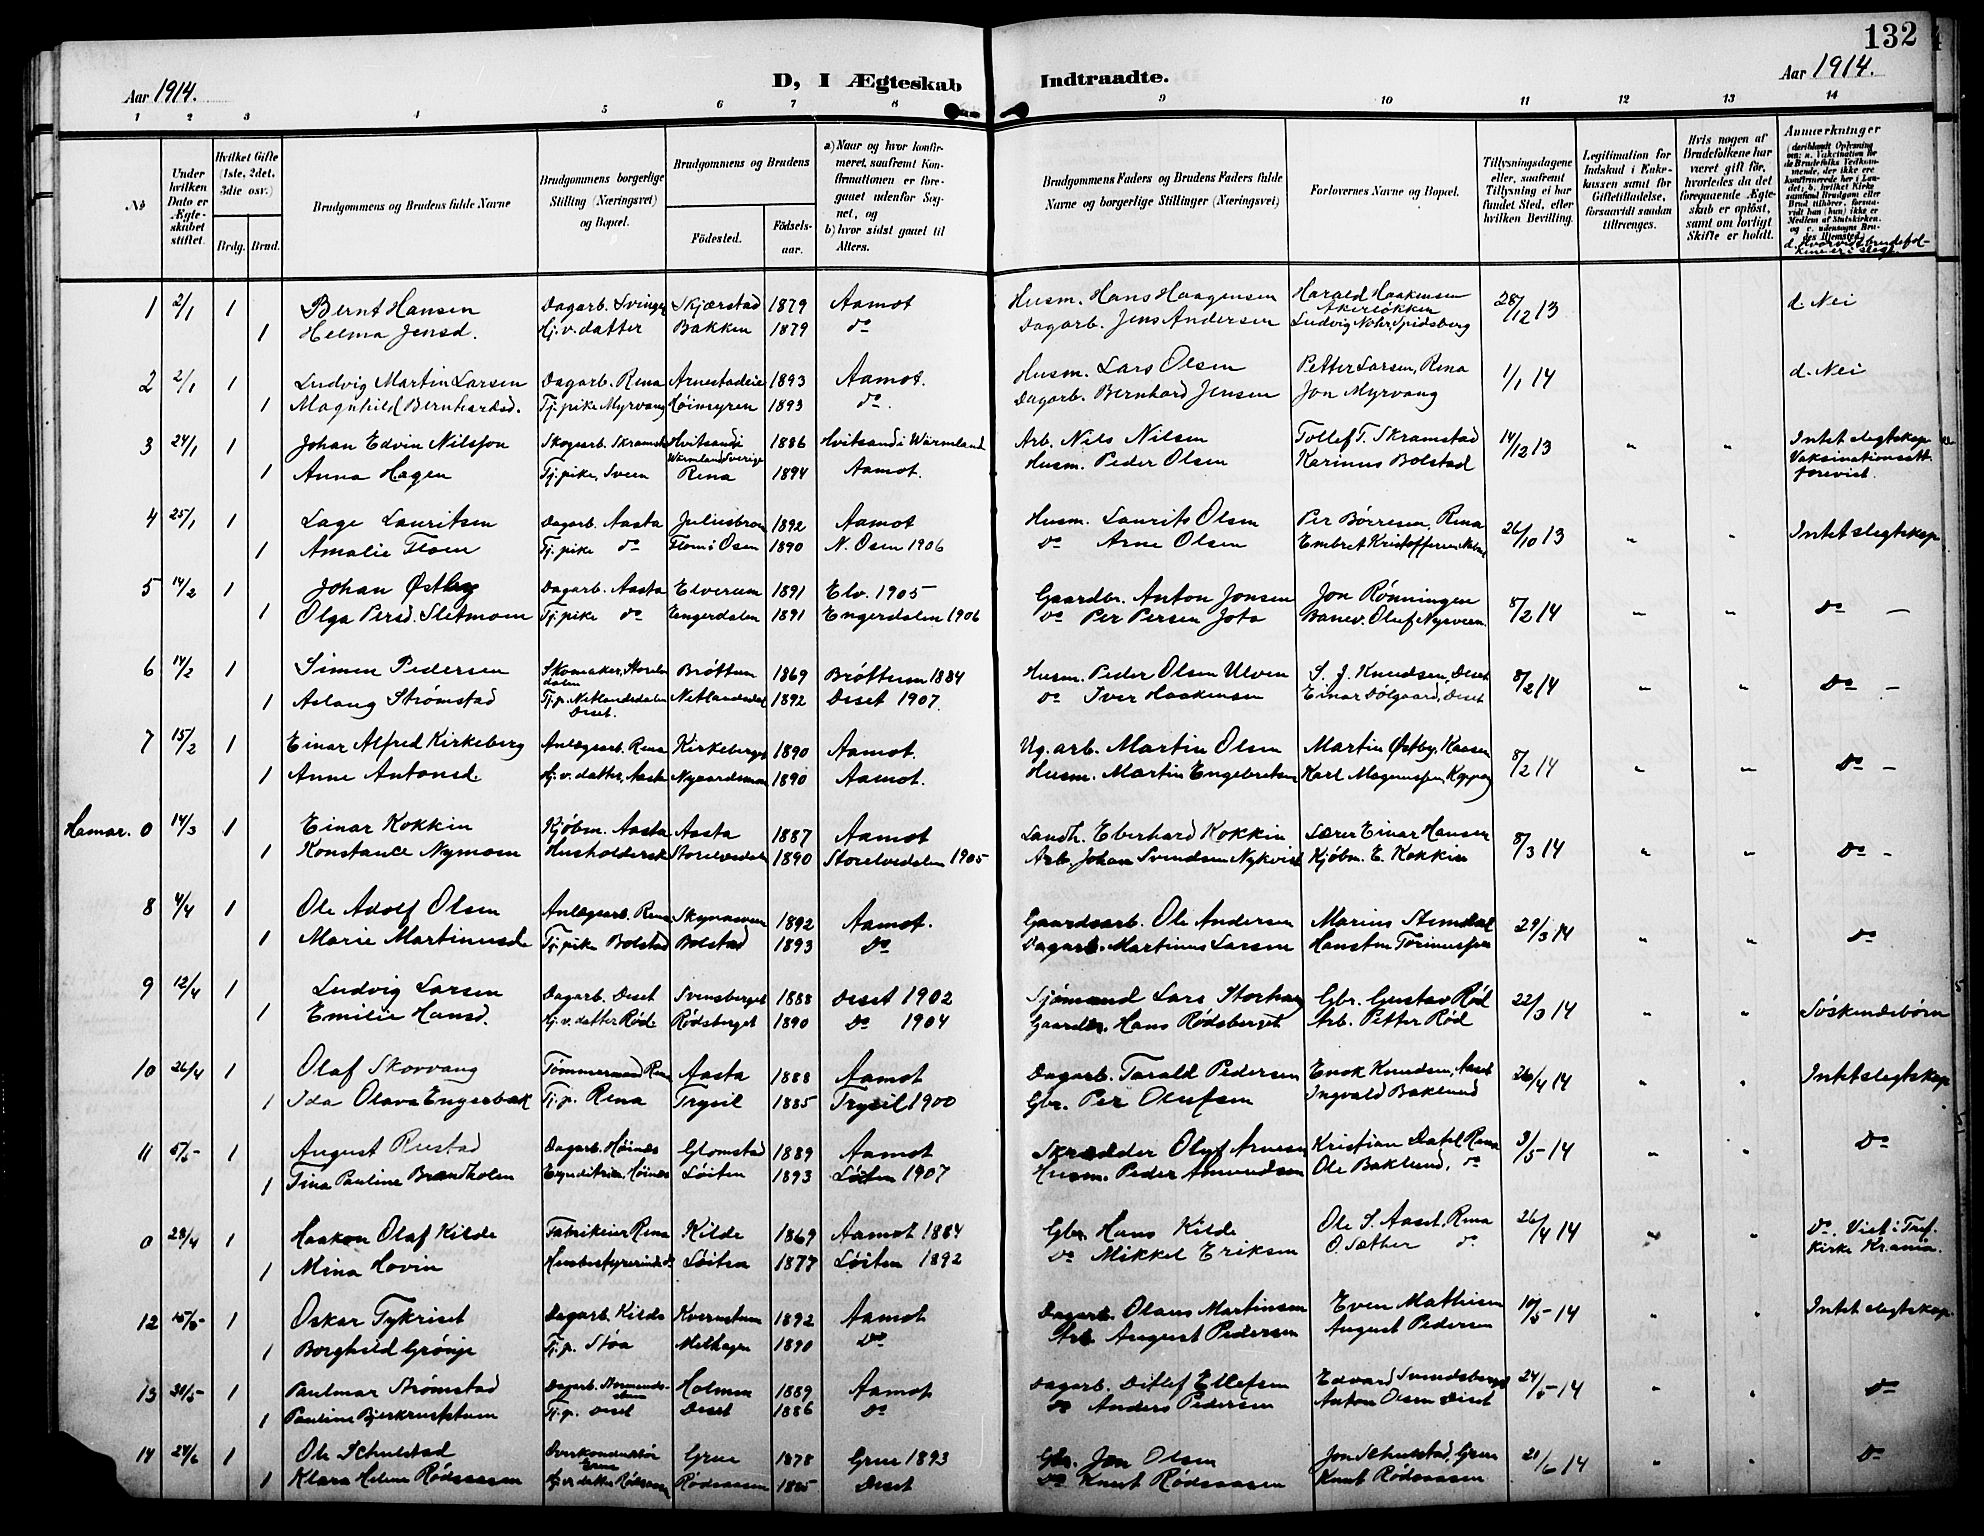 132
Aar 1914.
D, I Ægteskab Indtraadte.
Aar 1914.
1 2 3 4 5 6 7 8 9 10 11 12 13 14
№
Under hvilken Dato er Ægteskabet stiftet.
Hvilket Gifte (1ste, 2det, 3dte osv.)
Brdg. Brud.
Brudgommens og Brudens fulde Navne
Brudgommens borgerlige Stilling (Næringsvei) og Bopæl.
Brudgommens og Brudens
Födested.
Födselsaar.
a) Naar og hvor konfirmeret, saafremt Konfirmationen er foregaaet udenfor Sognet, og
b) hvor sidst gaaet til Alters.
Brudgommens Faders og Brudens Faders fulde Navne og borgerlige Stillinger (Næringsvei)
Forlovernes Navne og Bopæl.
Tillysningsdagene eller, saafremt Tillysning ei har fundet Sted, efter hvilken Bevilling.
Legitimation for Indskud i Enkekassen samt for Giftetilladelse, forsaavidt saadan tiltrænges.
Hvis nogen af Brudefolkene har været gift för, hvorledes da det foregaaende Ægteskab er oplöst, samt om lovligt Skifte er holdt.
Anmerkninger
1 2/1 1 Bernt Hansen Dagarb. Svingen Skjærstad 1879 Aamot Husm. Hans Haagensen Harald Haakensen Akerløkken 28/12 13 d. Nei
1 Helma Jensd. Hj.v. datter Bakken 1879 do Dagarb. Jens Andersen Ludvig Nohr, Spidsberg
2 2/1 1 Ludvig Martin Larsen Dagarb. Rena Arnestadeie 1893 Aamot. Husm. Lars Olsen Petter Larsen, Rena 1/1 14 d. Nei
1 Magnhild Bernhardsd. Tj. pike Myrvang Høimyren 1893 do. Dagarb. Bernhard Jensen Jon Myrvang
3 24/1 1 Johan Edvin Nilsson Skogsarb. Skramstad Hvitsand i Wärmland Sverige 1886 Hvitsand i Wärmland Arb. Nils Nilsen Tollef T. Skramstad 14/12 13 " " Intet slegtskap
1 Anna Hagen Tj. pike, Sveen Rena 1894 Aamot. Husm. Peder Olsen Karinus Bolstad Vaksinationsatt. forevist.
4 25/1 1 Lage Lauritsen Dagarb. Aasta Juliusbroen 1892 Aamot Husm. Laurits Olsen Per Børresen, Rena 26/10 13 " " Intet slegtskap
1 Amalie Floen Tj. pike do Floen i Osen 1890 N. Osen 1906 do Arne Olsen Embret Kristoffersen
5 14/2 1 Johan Østby Dagarb. Aasta Elverum 1891 Elv. 1905 Gaardbr. Anton Jonsen Jon Rønningen 8/2 14 " " do —
1 Olga Persd. Sletmoen Tj. pike do Engerdalen 1891 Engerdalen 1906 do Per Persen Jota Banev. Oluf Nysveen
6 14/2 1 Simen Pedersen Skomaker, Storelvdalen Brøttum 1869 Brøttum 1884 Husm. Peder Olsen Ulven S. J. Knudsen, Deset 8/2 14 " " do —
1 Aslaug Strømstad Tj. p. Netlandsdalen Deset. Netlandsdal 1892 Deset 1907. do Iver Haakensen Einar Dølgaard, Deset
7 15/2 1 Einar Alfred Kirkeberg Anlægsarb. Rena Kirkeberget 1890 Aamot. Ug. arb. Martin Olsen Martin Østby, Kaasen 8/2 14 " " do —
1 Anne Antonsd. Hj. v. datter, Aasta Nygaardsmoen 1890 Aamot. Husm. Martin Engebretsen Karl Magnussen, Koppang
Hamar. 0 14/3 1 Einar Kokkin Kjøbm. Aasta Aasta 1887 Aamot Landh. Eberhard Kokkin Lærer Einar Hansen 8/3 14 " " do —
1 Konstance Nymoen Husholderske Storelvedalen 1890 Storelvedalen 1905 Arb. Johan Svendsen Nykvist Kjøbm. E. Kokkin
8 4/4 1 Ole Adolf Olsen Anlægsarb. Rena Skynasveen 1892 Aamot. Gaardsarb. Ole Andersen Marius Stemdal 29/3 14 " " do
1 Marie Martinusd. Tj. pike Bolstad Bolstad 1893 do Dagarb. Martinus Larsen
9 12/4 1 Ludvig Larsen Dagarb. Deset Svensberget 1888 Deset 1902 Sjömand Lars Storhaug Gbr. Gustav Rød 22/3 14 " " Søskendebørn
1 Emilie Hansd. Hj. v. datter Rød. Rødsberget 1890 do 1904 Gaardbr. Hans Rødsberget Arb. Petter Rød
10 26/4 1 Olaf Skovvang Tømmermand Rena Aasta 1888 Aamot Dagarb. Tarald Pedersen Enok Knudsen, Aaset 26/4 14 " " Intet slegtskap
1 Ida Olava Engerbak Tj. p. Rena Trysil 1885 Trysil 1900 Gbr. Per Olufsen Ingvald Baklund
11 5/5 1 August Rustad Dagarb. Høines Glomstad 1889 Aamot Skrædder Oluf Arnesen Kristian Dahl Rena 3/5 14 " " do
1 Tina Pauline Brandholen Expeditrice, Høines Løiten 1893 Løiten 1907 Husm. Peder Amundsen Ole Baklund, do
0 28/4 1 Haakon Olaf Kilde Fabrikeier Rena Kilde 1869 Aamot 1884 Gbr. Hans Kilde Ole S. Aaset, Rena 26/4 14 " " do. Viet i Tref. Kirke Krania.
1 Mina Hovin Husbestyrerinde do Løiten 1877 Løiten 1892 do Mikkel Eriksen O. Sæther do
12 15/5 1 Oskar Tykriset Dagarb. Kilde Kvernstuen 1892 Aamot Dagarb. Olaus Martinsen Even Mathisen 10/5 14 " " Intet slegtskap.
1 Borghild Grønje Tj. p. Støa Melhagen 1890 do Arb. August Pedersen August Pedersen
13 30/5 1 Paulmar Strømstad Dagarb. Holmen 1889 Aamot Dagarb. Ditlef Ellefsen Edvard Svendsberget 24/5 14 " " do
1 Pauline Tj. p. Deset Deset 1886 do do Anders Pedersen Anton Olsen Deset
14 24/6 1 Ole Schulstad Overkonduktør Grue Grue 1878 Grue 1893 Gbr. Jon Olsen Jon Schulstad, Grue 21/6 14 " " do
1 Klara Helene Rødsaasen Hj. v. datter Rødsaasen Rødsaasen 1885 Deset do Knut Rødsaasen Knut Rødsaasen